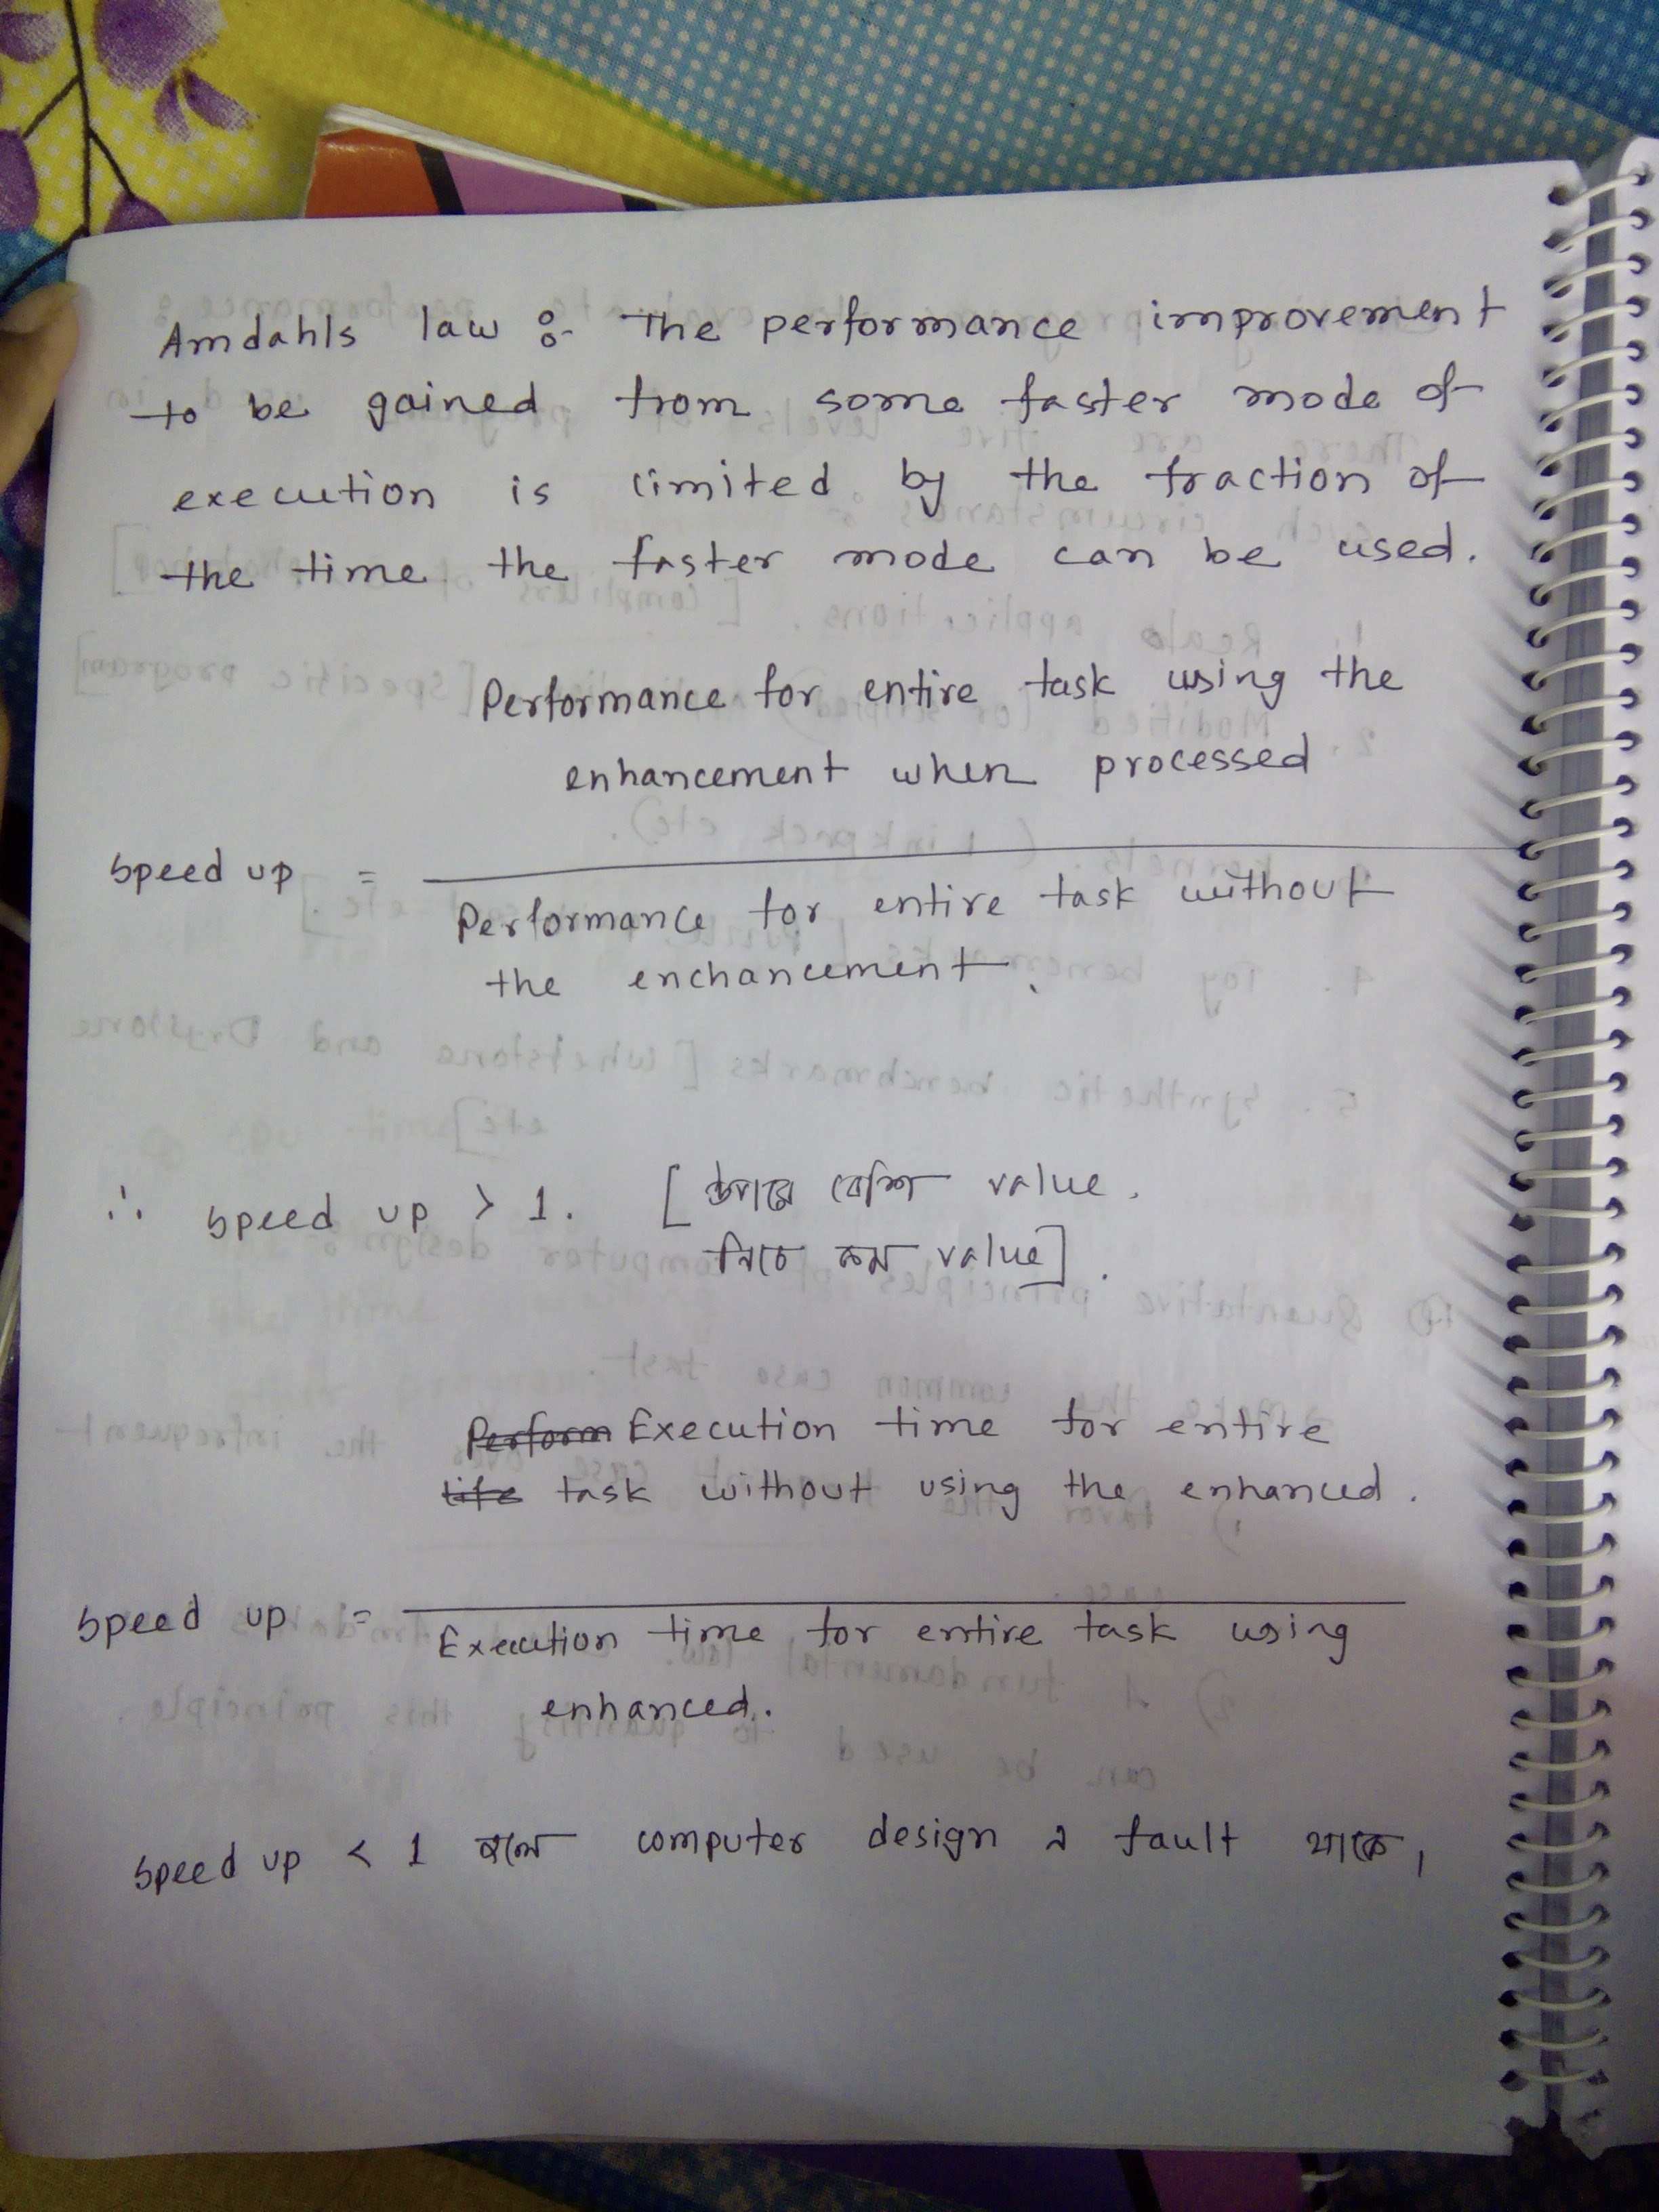 Amdahls law :- The performance improvement
to be gained from some faster mode of
execution is limited by the fraction of
the time the faster mode can be used.
Performance for entire task using the
enhancement when processed
Speed up =
Performance for entire task without
the enchancement.
∴ Speed up > 1. [ উপরে বেশি value.
নিচে কম value].
Perform Execution time for entire
task without using the enhanced.
Speed up =
Execution time for entire task using
enhanced.
Speed up < 1 হলে computer design এ fault থাকে,